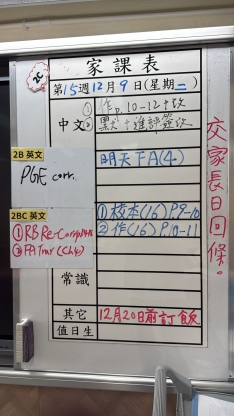 2C
家課表
第15週12月9日(星期二)
中文
①作 p.10-12+改
②默++進評簽改
2B 英文
PGE corr.
明天下A(4)
2BC 英文
①RB Re-Corr
②PA Trav (Ch4)
①校本(16) P.9-10
②作(16) P.10-11
常識
其它
12月20日前訂飯
值日生
交家長日回條。